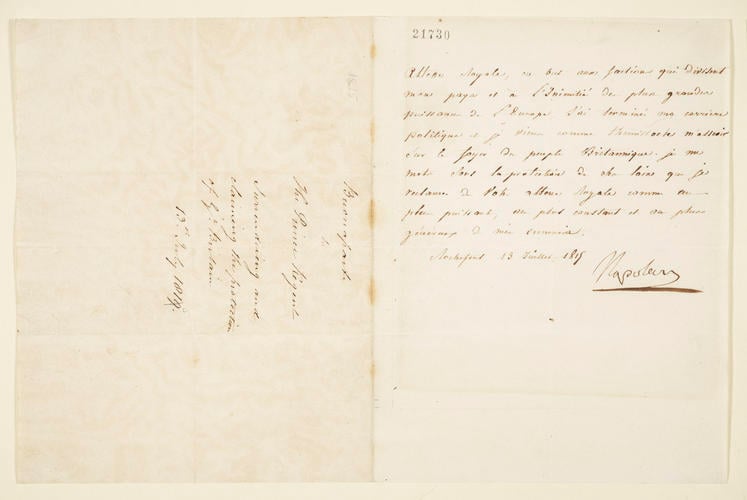 21730
Altesse Royale, en but aux factions qui divisent
mon pays et à l'Inimitié de plus grandes
puissance de l'Europe j'ai terminé ma carriere
politique et je viens comme themistocle m'asseoir
sur le foyer du peuple Britannique. je me
mets sous la protection de ses loix que je
reclame de Votre altesse Royale comme au
plus puissant, au plus constant et au plus
généreux de mes ennemis.
Rochefort 13 Juillet 1815
Napoleon
1815
Buonaparte
to
The Prince Regent
Surrendering and
claiming the protection
of Gt. Britain
13th July 1815.